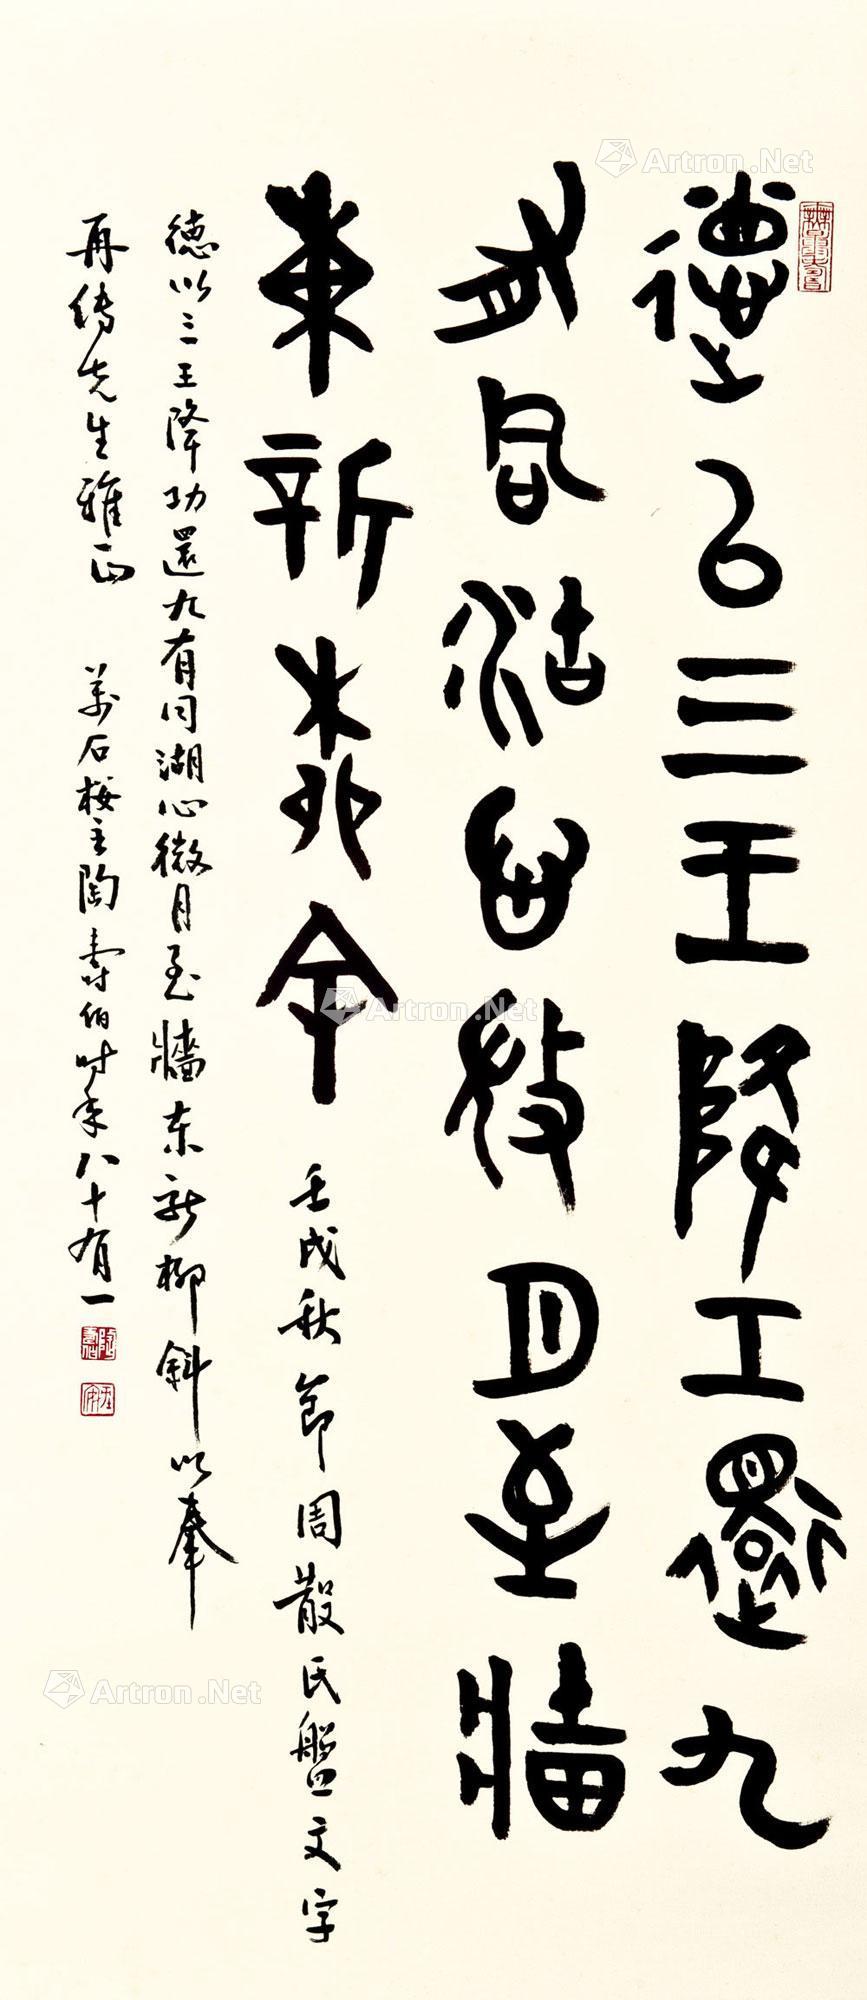 德以三王降工還九
有同湖心微月至牆
東新柳斜
壬戌秋節周散氏盤文字
德以三王降功還九有同湖心微月至牆东新柳斜以奉
再傳先生雅正 萬石樓主陶壽伯時年八十有一
Artron.Net
Artron.Net
Artron.Net